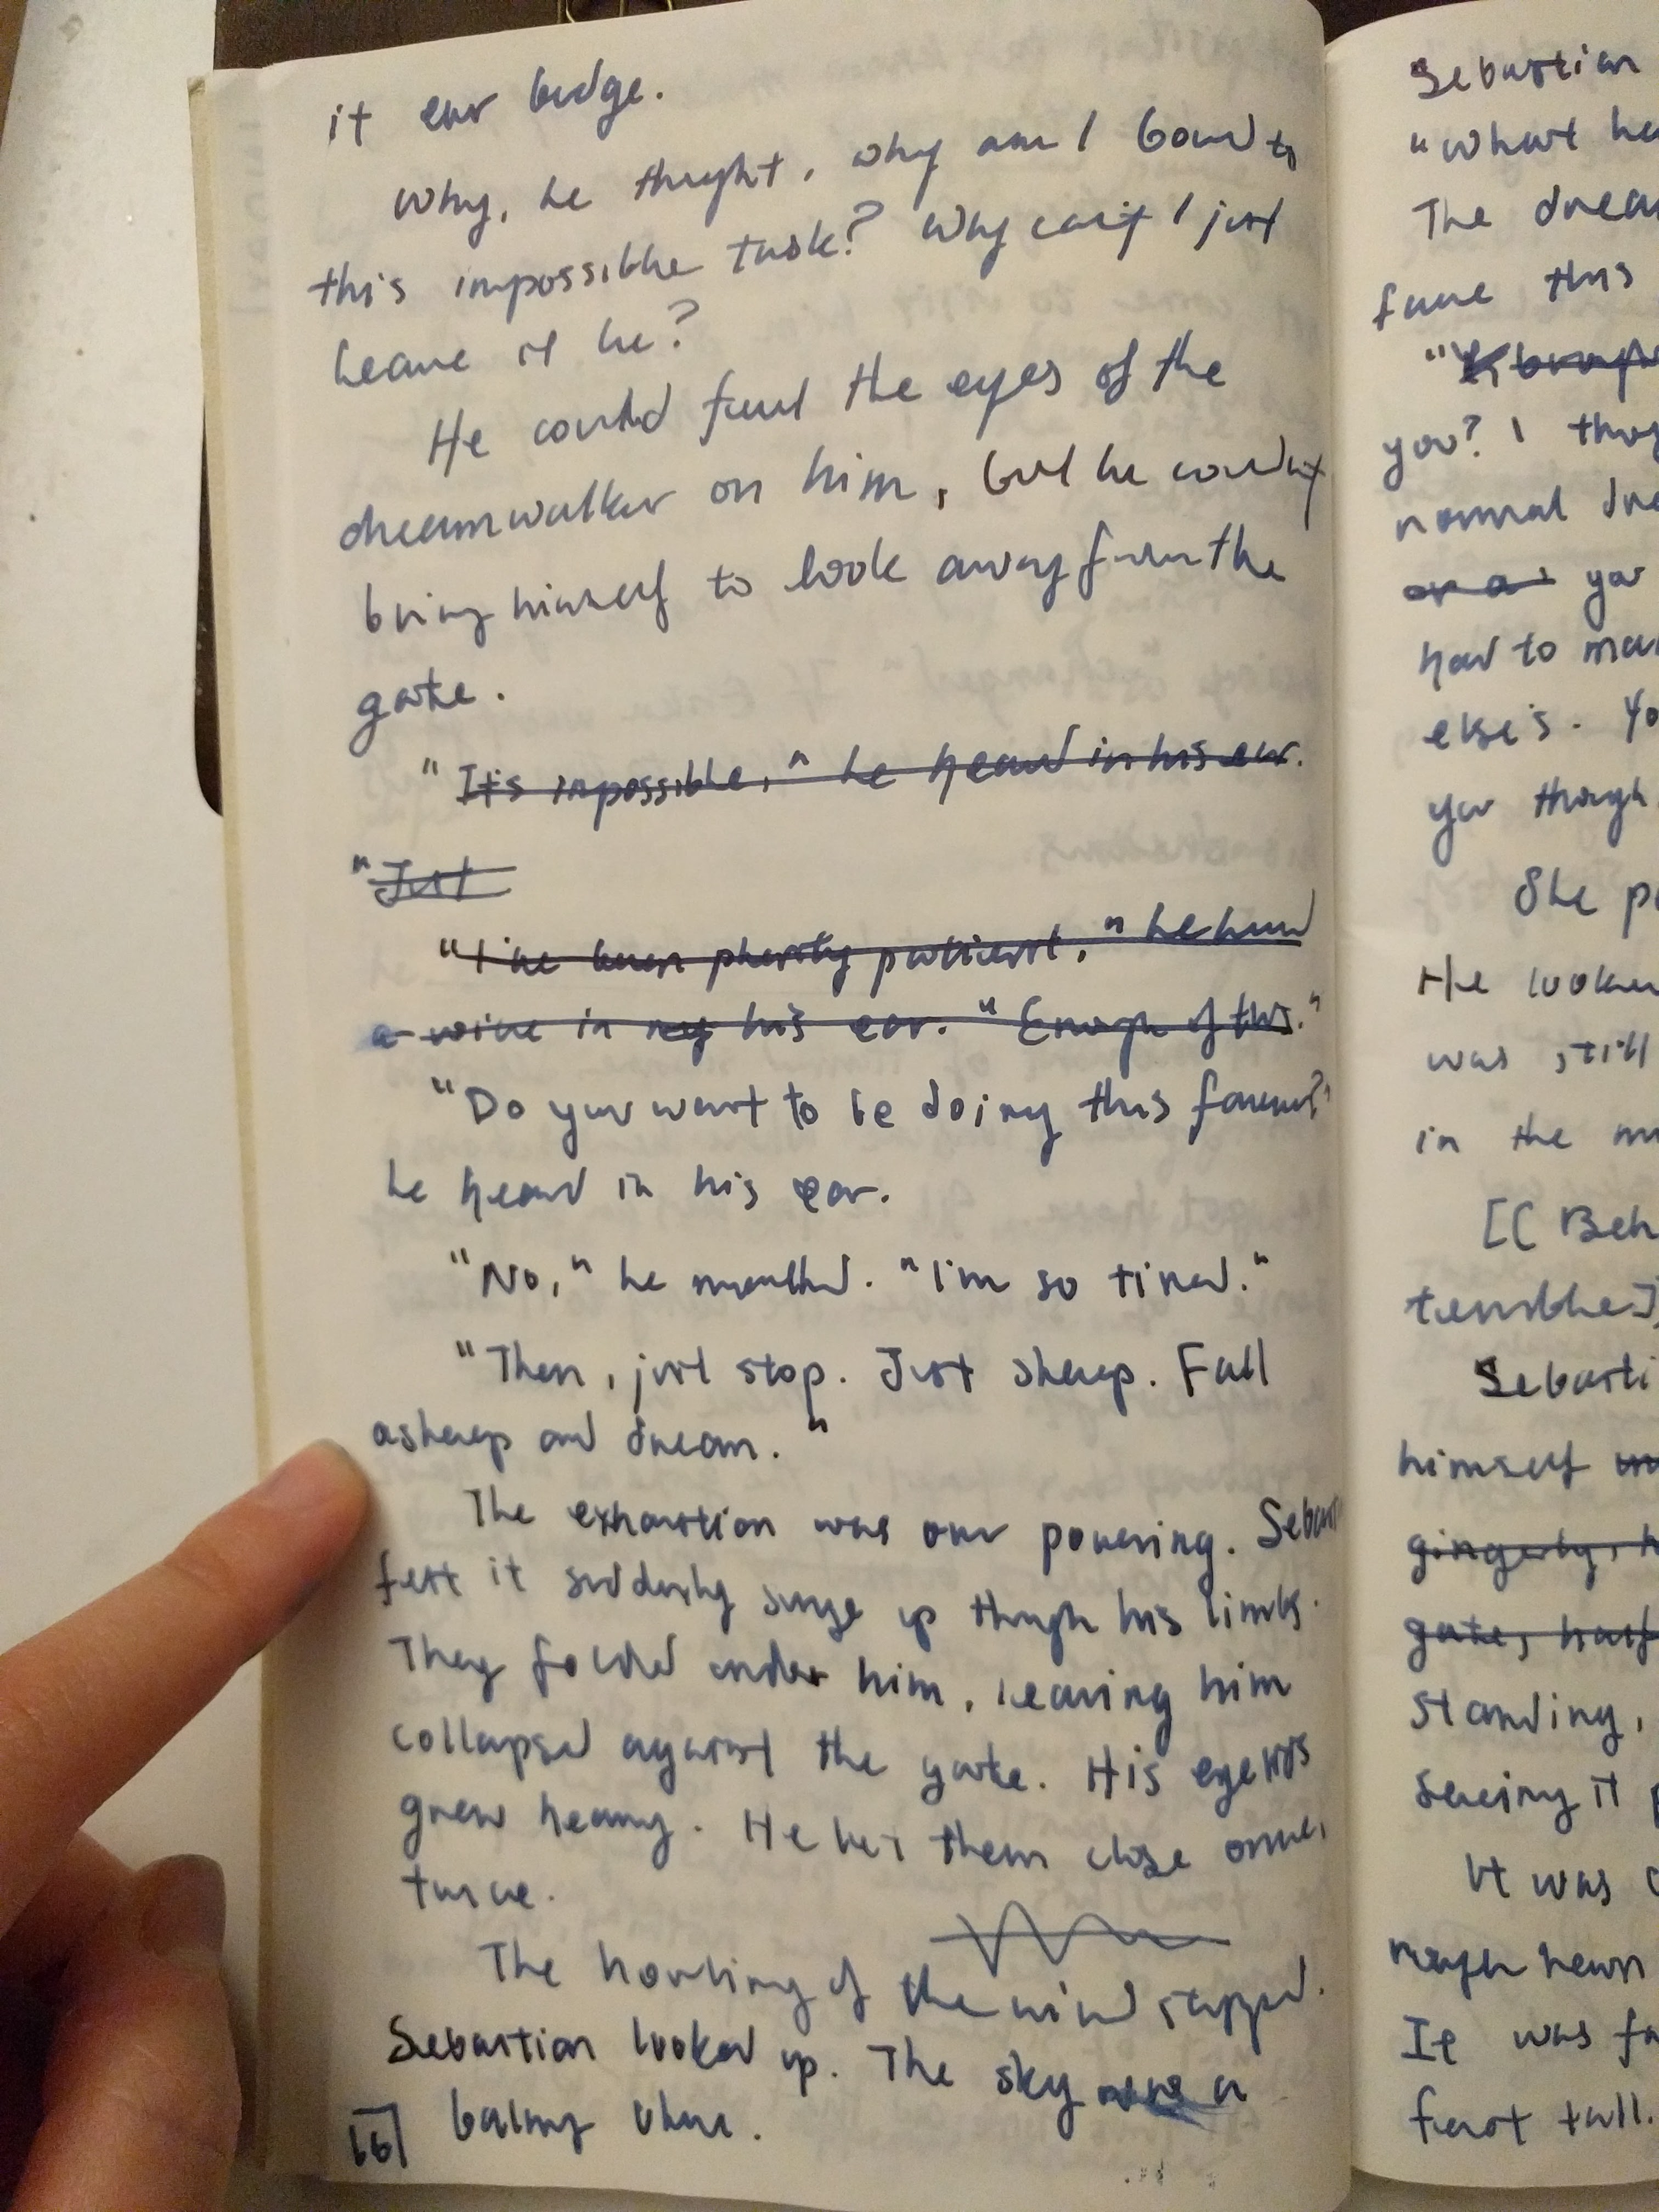 it ever budge.
Why, he thought, why am I bound to
this impossible task? Why can't I just
leave it be?
He could feel the eyes of the
dreamwalker on him, but he couldn't
bring himself to look away from the
gate.
"It's impossible," he heard in his ear.
"Just
"I've been plenty patient," he heard
a voice in my his ear. "Enough of this."
"Do you want to be doing this forever?"
he heard in his ear.
"No," he mouthed. "I'm so tired."
"Then, just stop. Just sleep. Fall
asleep and dream."
The exhaustion was over powering. Sebast
felt it suddenly surge up through his limbs.
They folded under him, leaving him
collapsed against the gate. His eyelids
grew heavy. He let them close once,
twice.
The howling of the wind stopped.
Sebastian looked up. The sky was a
balmy blue.
16
Sebastian
"What ha
The dream
face this
you? I thoug
normal dre
or a you
had to ma
else's. Yo
you though
She p
He looked
was still
in the m
[[Beh
terrible]
Sebasti
himself
gingerly, h
gate, half
standing,
Seeing it p
It was
rough hewn
It was fo
feet tall.